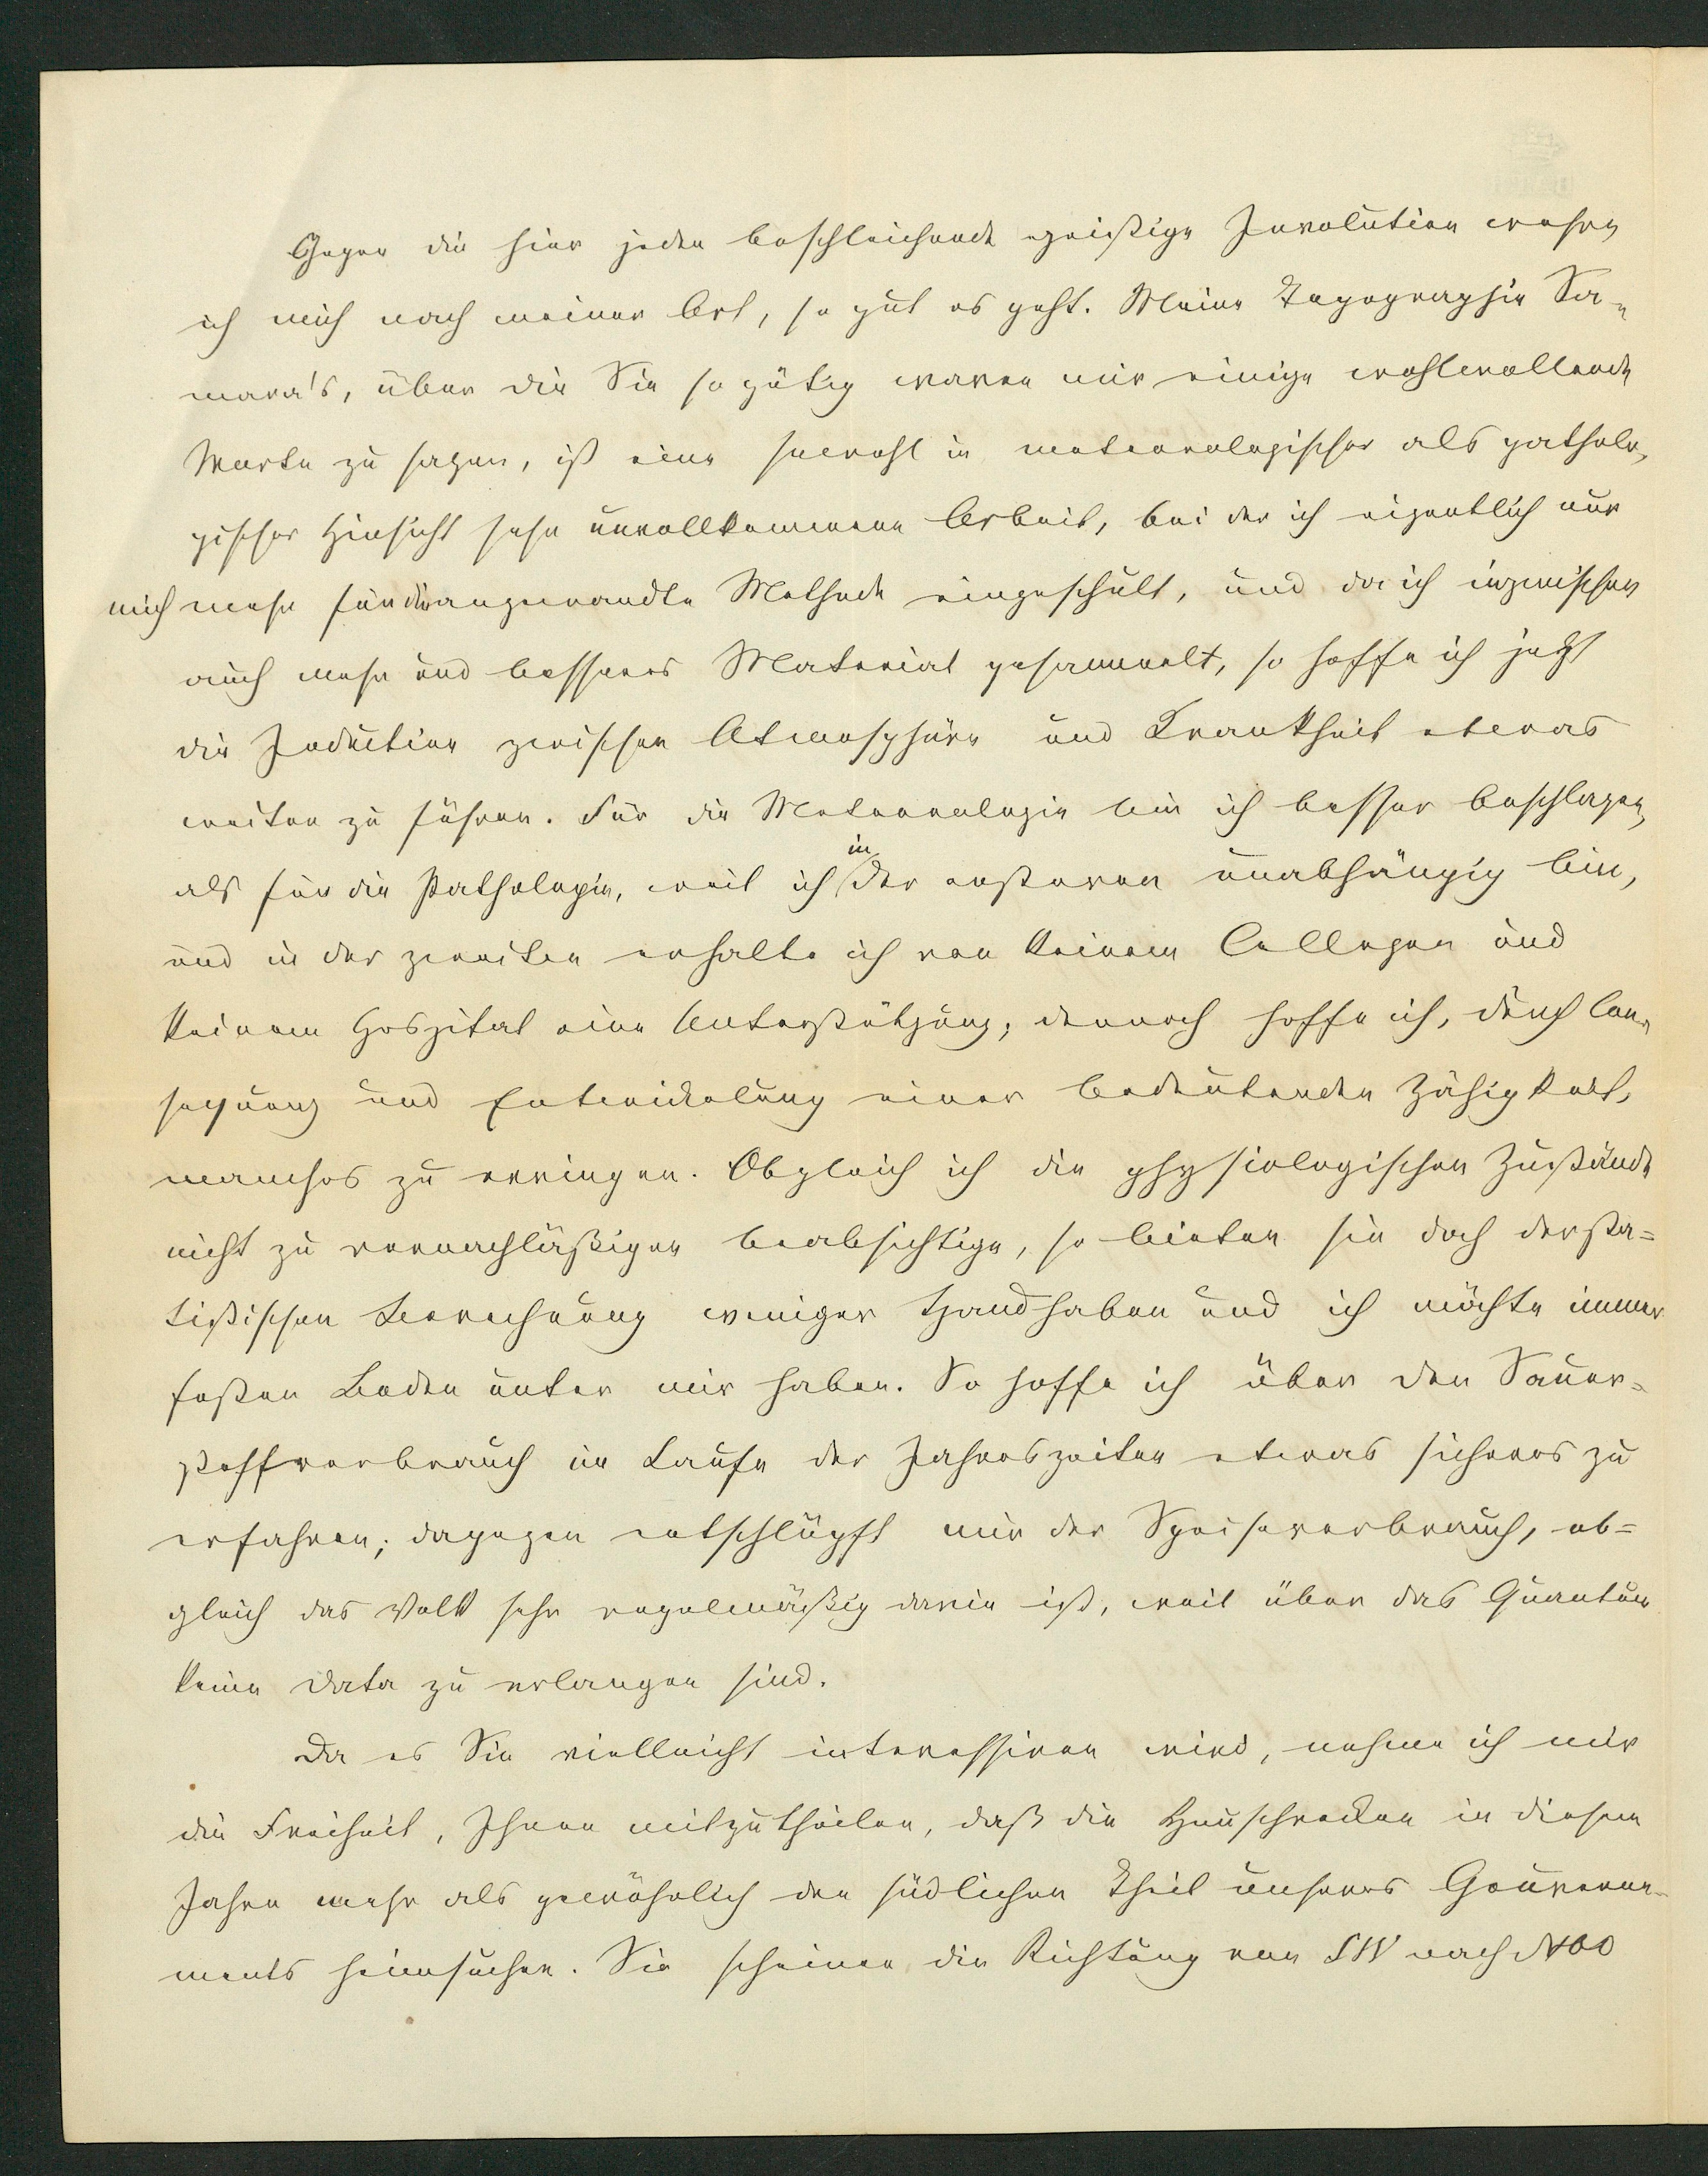 Gegen die hier jeden beschleichende geistige Involution wehre
ich mich nach meiner Art, so gut es geht. Meine Topographie Sa-
mara's, über die Sie so gütig waren mir einige wohlwollende
Worte zu sagen, ist eine sowohl in meteorologischer als patholo-
gischer Hinsicht sehr unvollkommene Arbeit, bei der ich eigentlich nur
mich mehr für die angewandte Methode eingeschult, und da ich inzwischen
auch mehr und besseres Material gesammelt, so hoffe ich jetzt
die Induction zwischen Atmosphäre und Krankheit etwas
weiter zu führen. Für die Meteorologie bin ich besser beschlagen,
als für die Pathologie, weil ich in der ersteren unabhängig bin,
und in der zweiten erhalte ich von keinem Collegen und
keinem Hospital eine Unterstützung; dennoch hoffe ich, durch Con-
sequenz und Entwickelung einer bedeutenden Zähigkeit,
manches zu erringen. Obgleich ich die physiologischen Zustände
nicht zu vernachläßigen beabsichtige, so bieten sie doch der sta-
tistischen Berechnung weniger Handhaben und ich möchte immer
festen Boden unter mir haben. So hoffe ich über den Sauer-
stoffverbrauch im Laufe der Jahreszeiten etwas sicheres zu
erfahren; dagegen entschlüpft mir der Speiseverbrauch, ob-
gleich das Volk sehr regelmäßig darin ist, weil über das Quantum
keine Data zu erlangen sind.
Da es Sie vielleicht interessiren wird, nehme ich mir
die Freiheit, Ihnen mitzutheilen, daß die Heuschrecken in diesem
Jahre mehr als gewöhnlich den südlichen Theil unseres Gouverne-
ments heimsuchen. Sie scheinen die Richtung von SW nach NOO